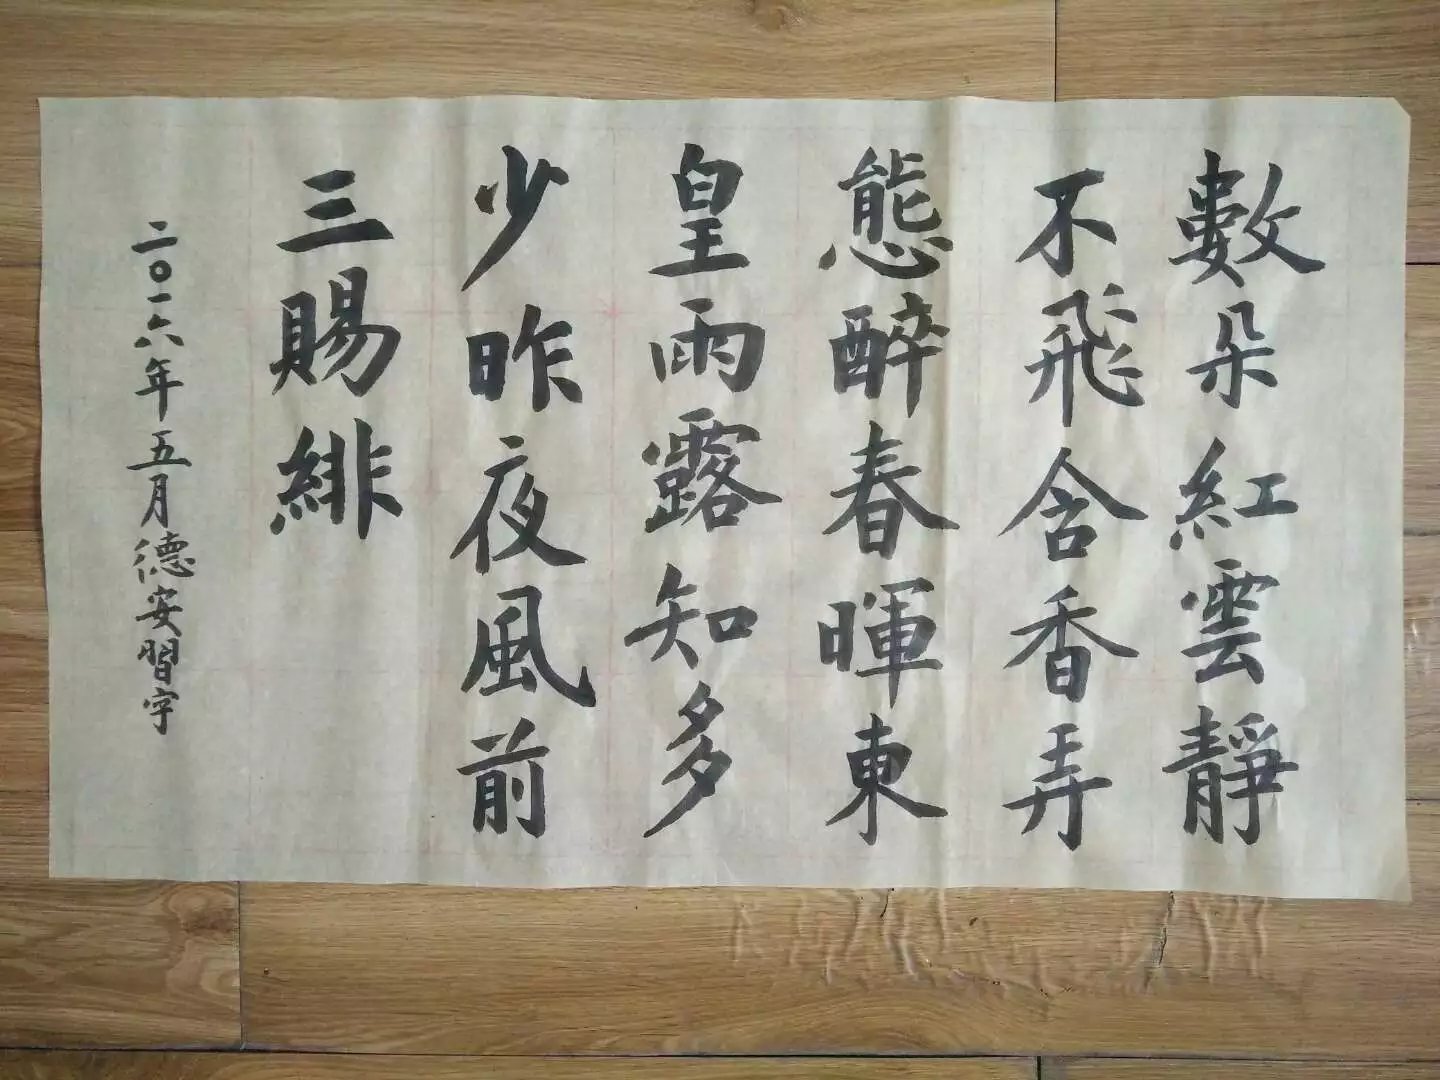 數朵紅雲靜
不飛含香弄
態醉春暉東
皇雨露知多
少昨夜風前
三賜緋
二〇一六年五月德安習字